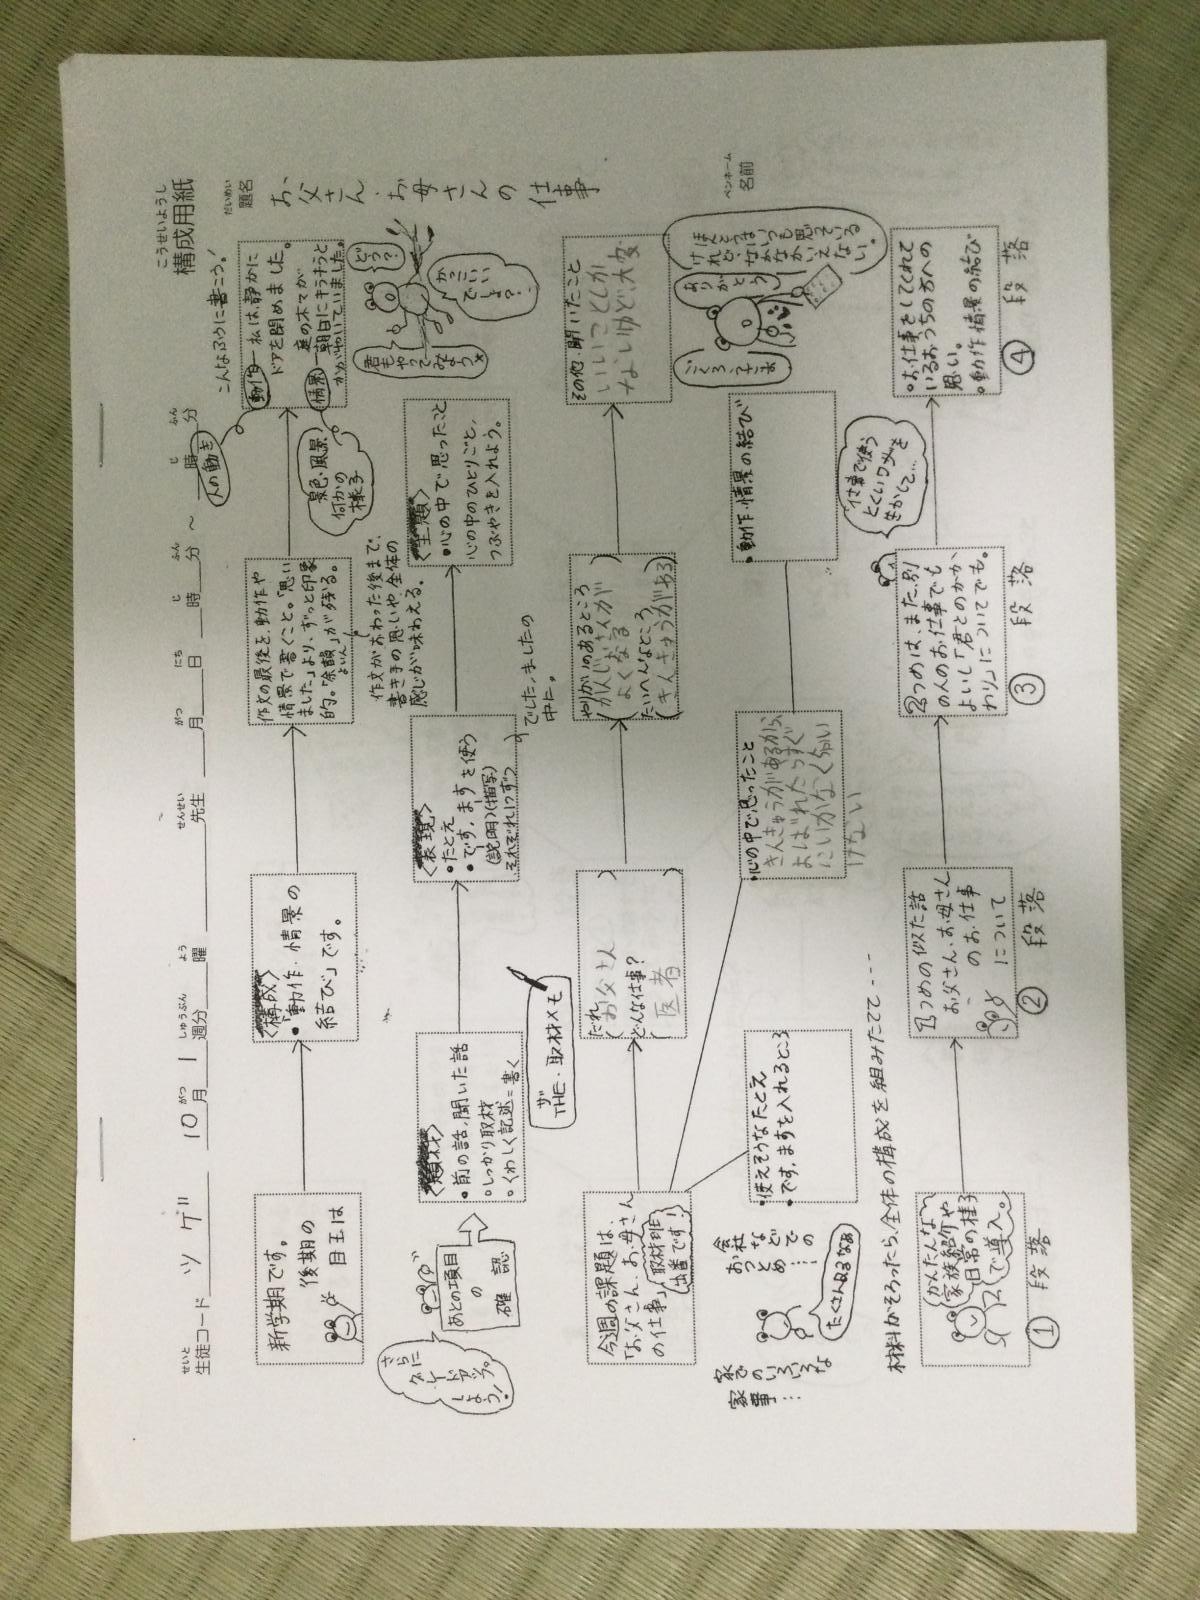 こうせいようし
構成用紙
だいめい
題名
お父さん・お母さんの仕事
ペンネーム
名前
せいと
生徒コード ツゲ
10月 1週分 曜 先生 月 日 時 分 ~ 時 分
がつ しゅうぶん よう せんせい がつ にち じ ふん じ ふん
新学期です。
後期の
目玉は
<構成>
•「動作・情景の
結び」です。
作文の最後を、動作や
情景で書くこと。「思い
ました」より、ずっと印象
的。「余韻」が残る。
よいん
作文がおわった後まで、
書き手の思いや、全体の
感じが味わえる。
こんなふうに書こう!
動作―私は、静かに
ドアを閉めました。
情景―庭の木々が、
朝日にキラキラと
かがやいていました。
人の動き
景色・風景
何かの
様子
どう?
かっこいい
でしょ?
君もやってみよう
さらに
グレードアップ
しよう!
あとの項目
の
確認
<題材>
•前の話、聞いた話
•しっかり取材
•くわしく記述=書く
<表現>
•たとえ
•です、ますを使う
(説明)(描写)
それぞれ1つずつ
でした、ましたの
中に。
<主題>
•心の中で思ったこと
心の中のひとりごと、
つぶやきを入れよう。
ザ
THE・取材メモ
今週の課題は、
「お父さん、お母さん
の仕事」
取材班
出番です!
だれ
(お父さん)
どんな仕事?
(医者)
やりがいのあるところ
(かんじゃさんが
よくなる)
たいへんなところ
(きんきゅうがある)
その他・聞いたこと
いいことしか
ないけど、大変
家でのいろいろな
家事…
会社などでの
おつとめ…
たくさんあるなぁ
•使えそうなたとえ
•です、ますを入れるところ
•心の中で思ったこと
きんきゅうがあるから、
よばれたらすぐ
にいかなく
ない
•動作・情景の結び
ごくろうさま
ありがとう
ほんとうはいつも思っている
けれど、なかなかいえない。
材料がそろったら、全体の構成を組みたてて----
かんたんな
家族紹介や
日常の様子
で導入。
①段落
1つめの似た話
お父さん、お母さん
のお仕事
について
②段落
2つめは、また、別
の人のお仕事でも
よいし「君とのかか
わり」についてでも。
③段落
仕事で使う
とくいワザを
生かして…
•お仕事をしてくれて
いるおうちの方への
思い。
•動作・情景の結び
④段落